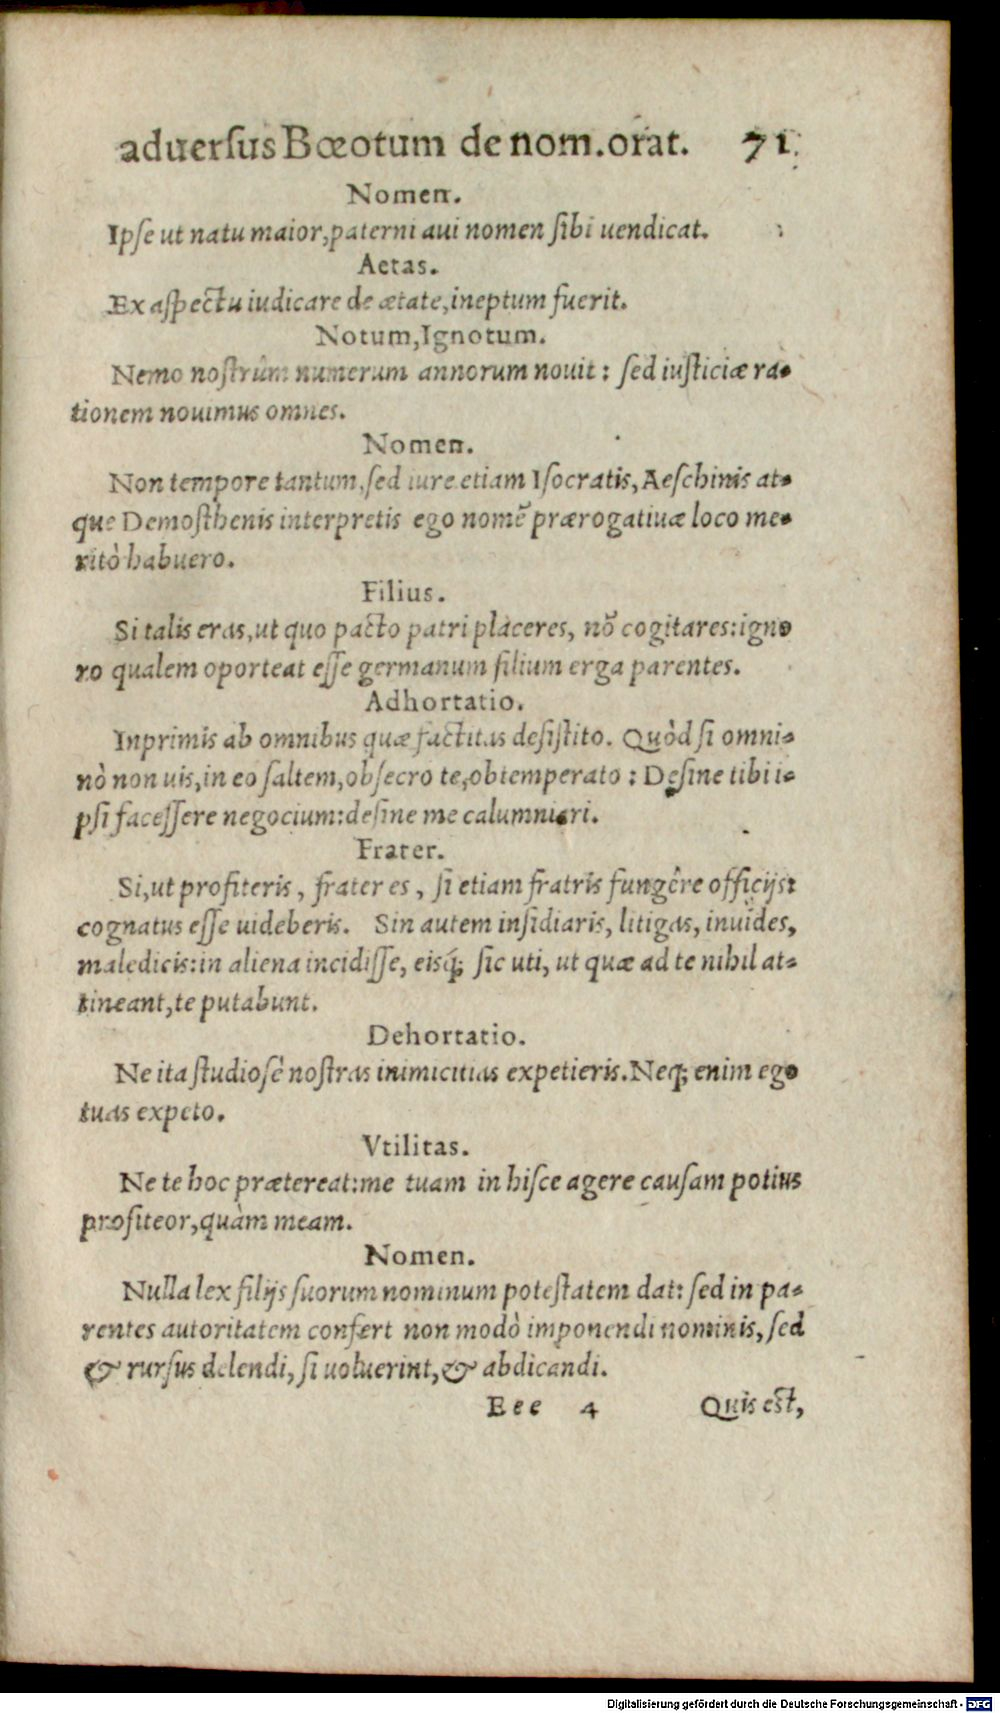 aduersus Bœotum de nom. orat. 71
Nomen.
Ipse ut natu maior, paterni aui nomen sibi uendicat.
Aetas.
Ex aspectu iudicare de ætate, ineptum fuerit.
Notum, Ignotum.
Nemo nostrûm numerum annorum nouit: sed iusticiæ ra-
tionem nouimus omnes.
Nomen.
Non tempore tantum, sed iure etiam Isocratis, Aeschinis at-
que Demosthenis interpretis ego nomẽ prærogatiuæ loco me-
ritò habuero.
Filius.
Si talis eras, ut quo pacto patri placeres, nõ cogitares: igno
ro qualem oporteat esse germanum filium erga parentes.
Adhortatio.
Inprimis ab omnibus quæ factitas desistito. Quòd si omni-
nò non uis, in eo saltem, obsecro te, obtemperato: Desine tibi i-
psi facessere negocium: desine me calumniari.
Frater.
Si, ut profiteris, frater es, si etiam fratris fungêre officijs:
cognatus esse uideberis. Sin autem insidiaris, litigas, inuides,
maledicis: in aliena incidisse, eisq́; sic uti, ut quæ ad te nihil at-
tineant, te putabunt.
Dehortatio.
Ne ita studiosè nostras inimicitias expetieris. Neq; enim ego
tuas expeto.
Vtilitas.
Ne te hoc prætereat: me tuam in hisce agere causam potius
profiteor, quàm meam.
Nomen.
Nulla lex filijs suorum nominum potestatem dat: sed in pa-
rentes autoritatem confert non modò imponendi nominis, sed
& rursus delendi, si uoluerint, & abdicandi.
Eee 4 Quis est,
Digitalisierung gefördert durch die Deutsche Forschungsgemeinschaft - DFG